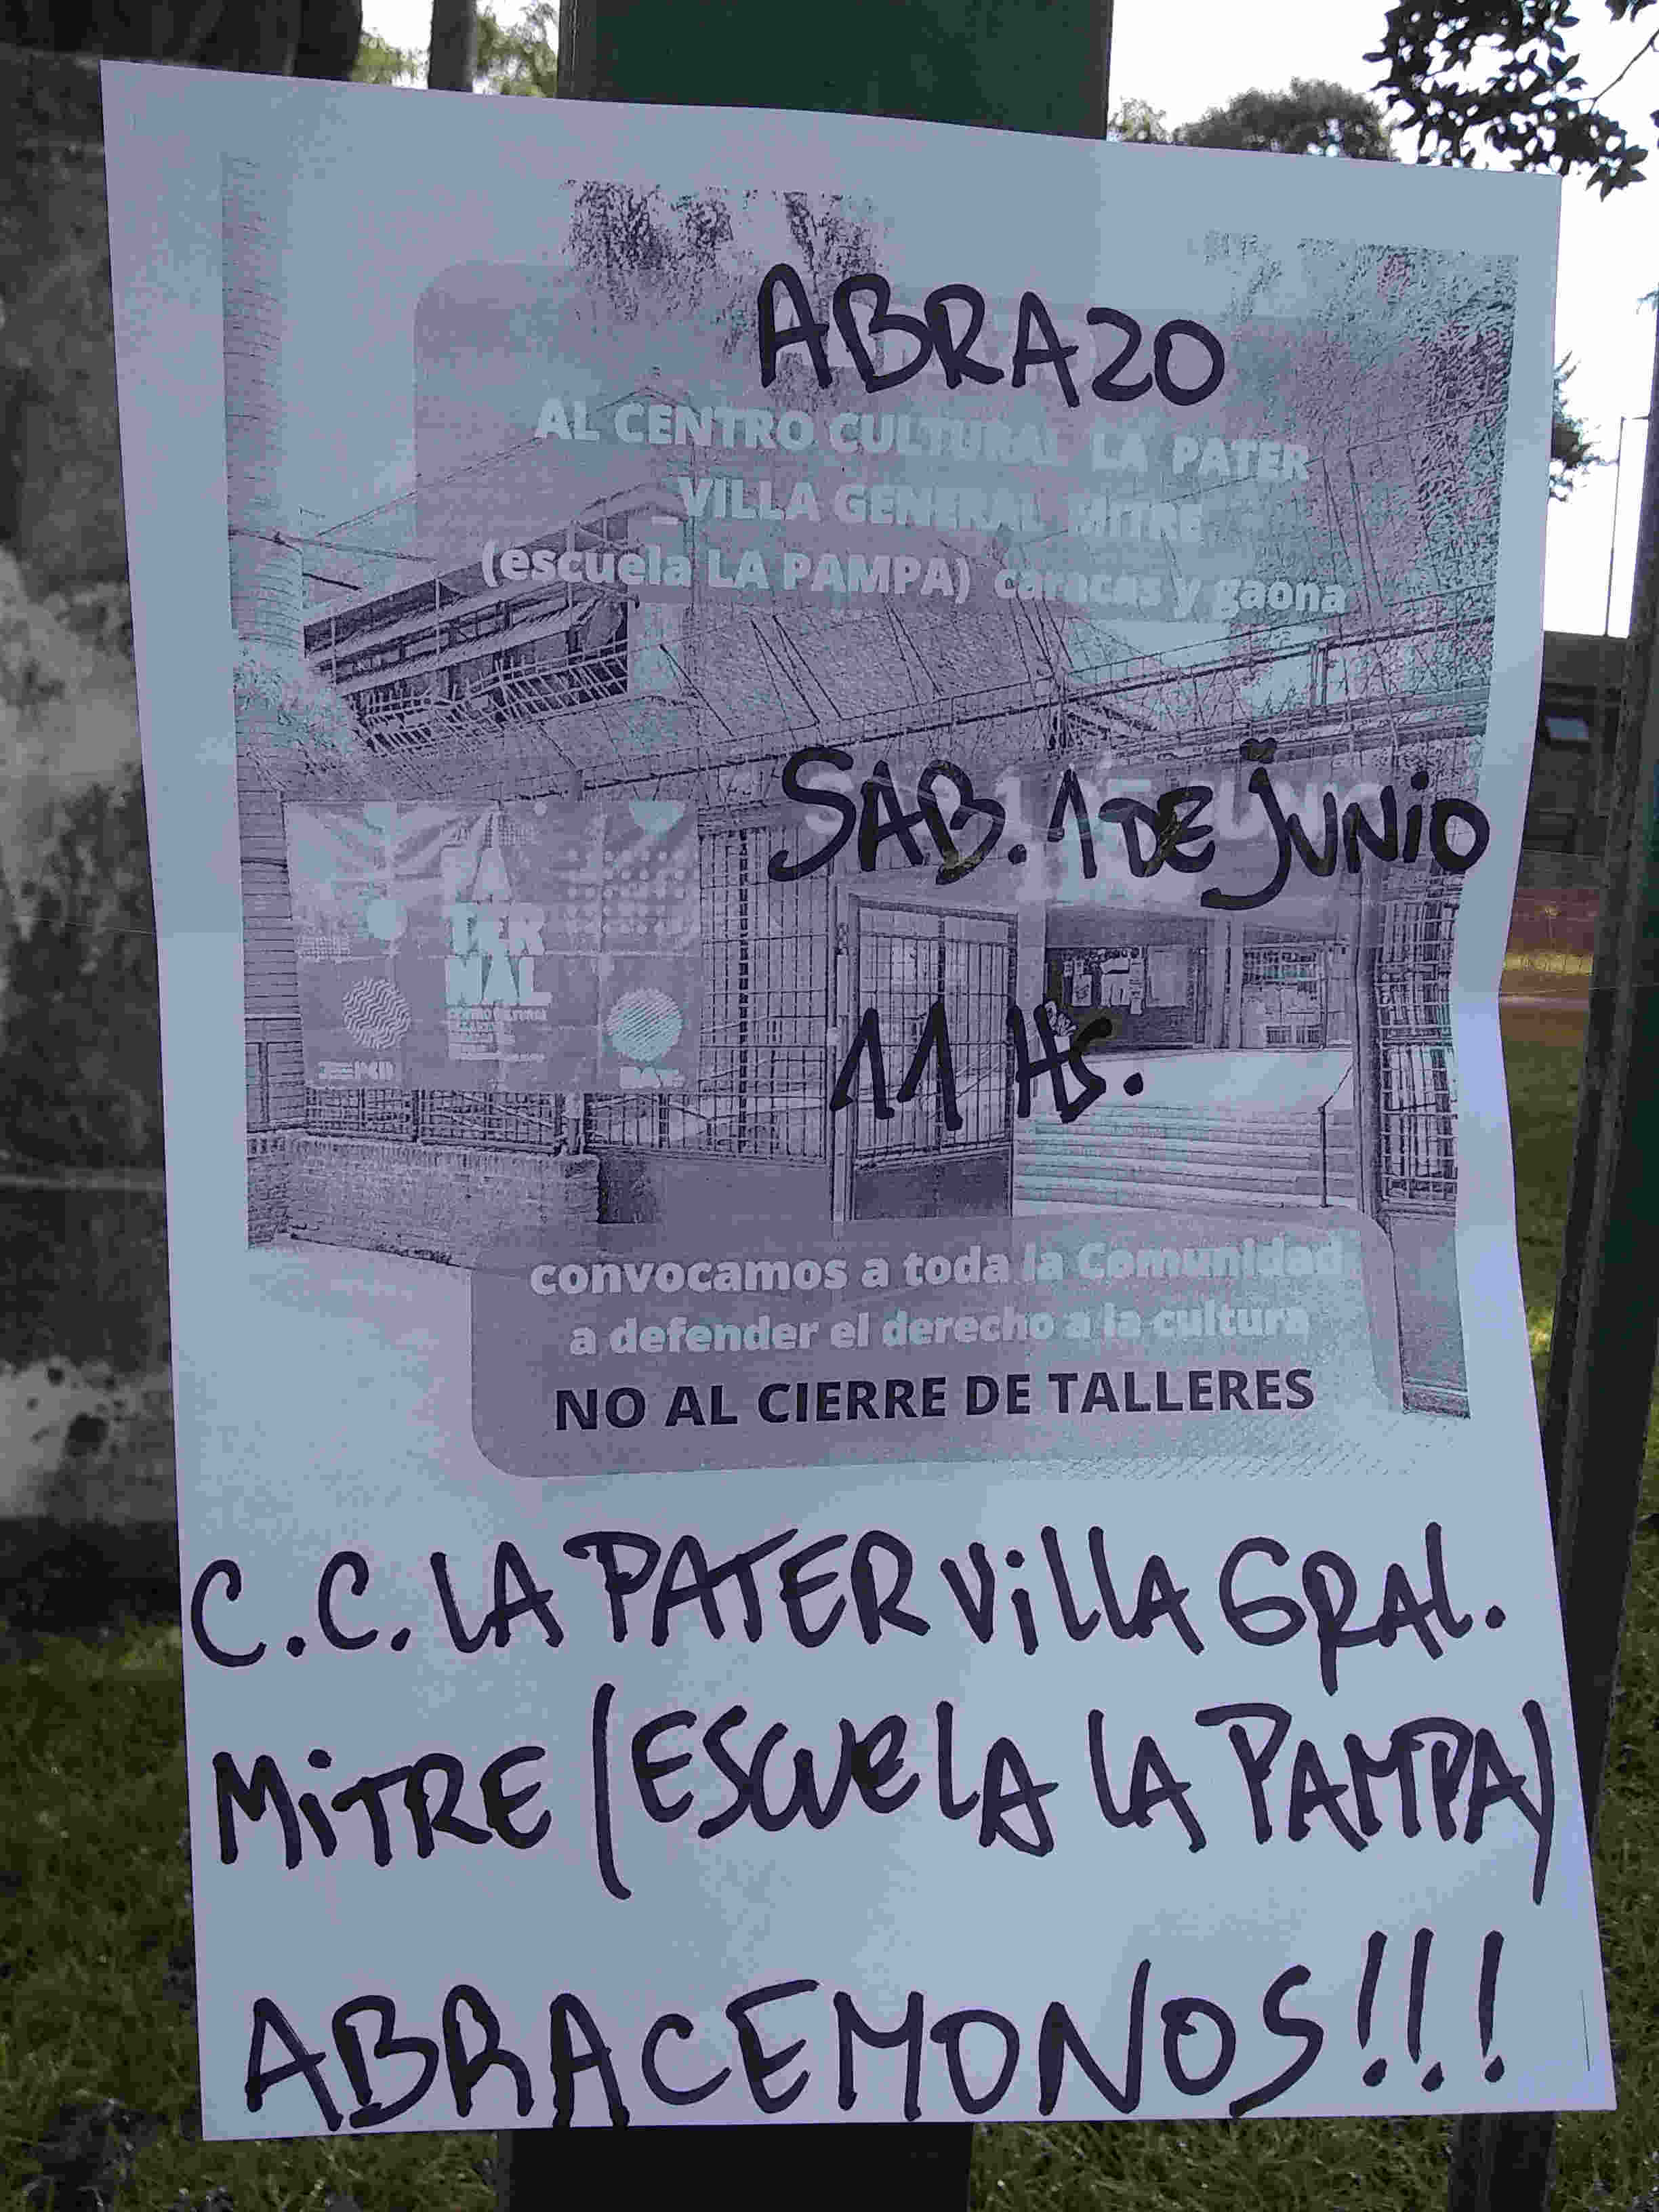 ABRAZO
AL CENTRO CULTURAL LA PATER
_VILLA GENERAL MITRE
(escuela LA PAMPA) caracas y gaona
SAB. 1 DE JUNIO
PA
TER
NAL
11 HS.
convocamos a toda la Comunidad
a defender el derecho a la cultura
NO AL CIERRE DE TALLERES
C.C. LA PATER VILLA GRAL.
MITRE (ESCUELA LA PAMPA)
ABRACEMONOS!!!